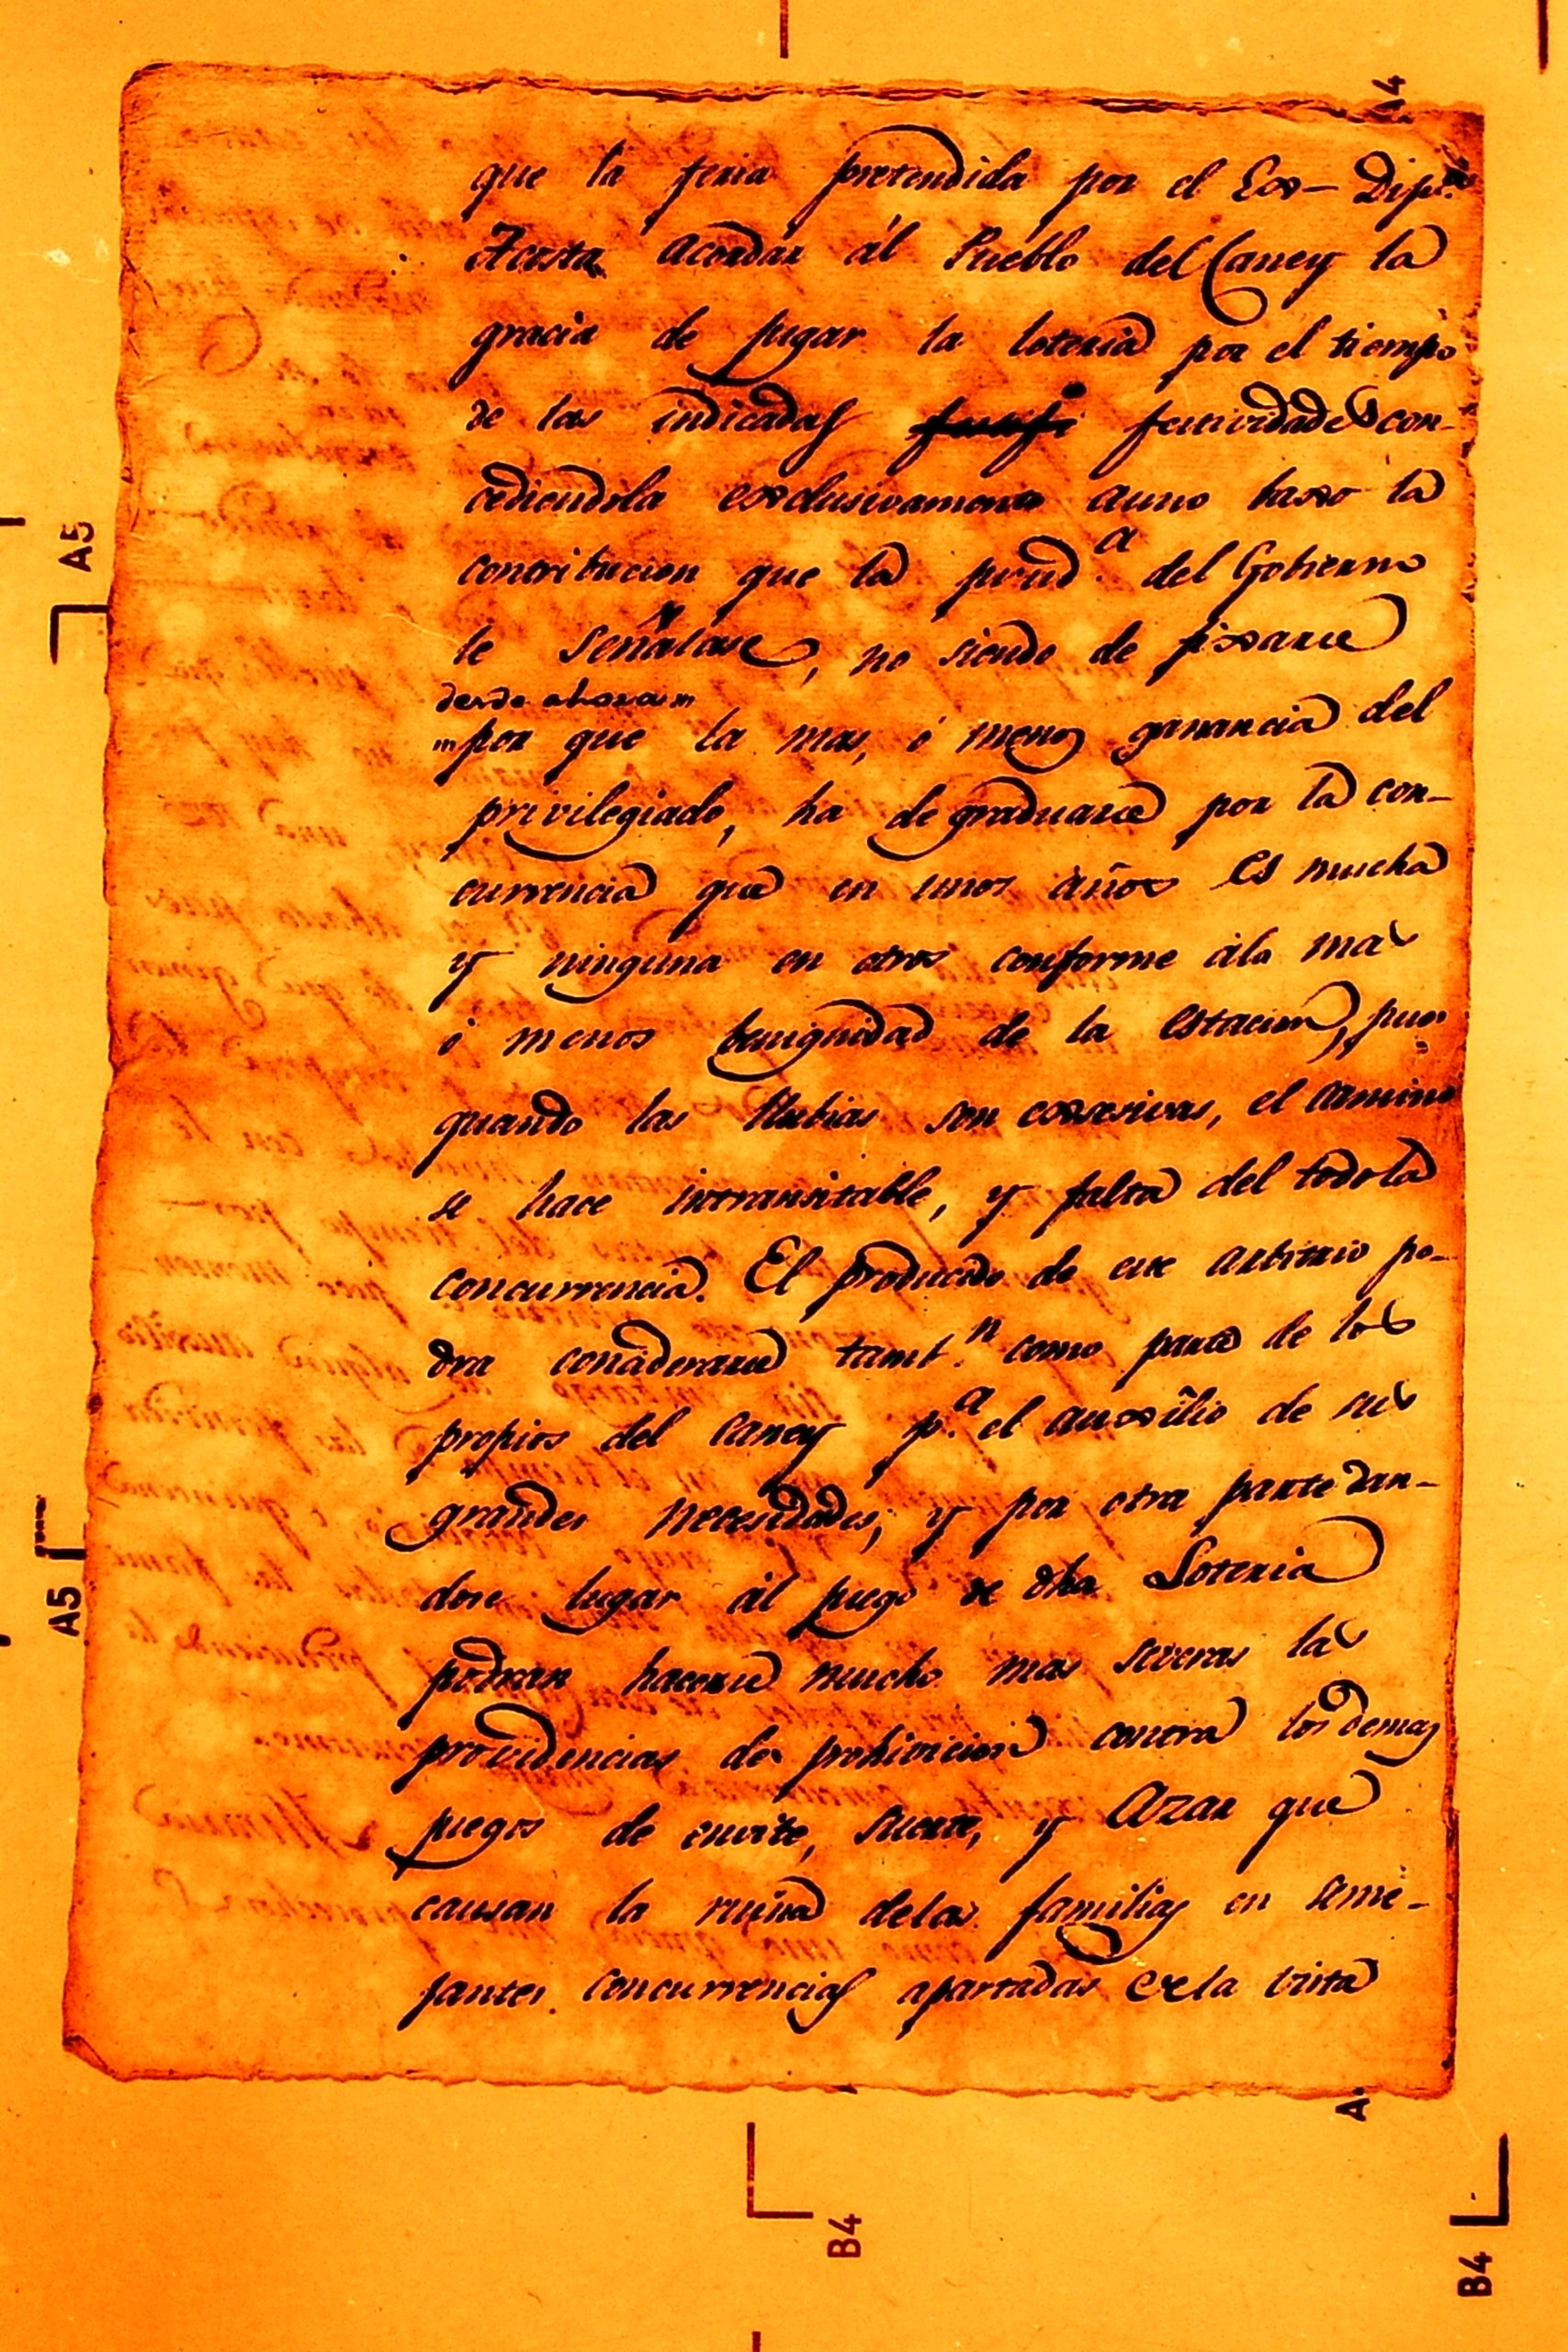 que la feria pretendida por el Ex- Dip.do
Acosta acordar ál Pueblo del Caney la
gracia de jugar la loteria por el tiempo
de las indicadas festividades con-
cediendola exclusivamente auno baxo la
contribucion que la prud.a del Gobierno
le señalase, no siendo de fixarce
desde ahora
por que la mas, ó menos ganancia del
privilegiado, ha de graduarce por la con-
currencia que en unos años es mucha
y ninguna en otros conforme ála mas
ó menos benignidad de la estacion, pues
quando las llubias son excesivas, el camino
se hace intransitable, y falta del todo la
concurrencia. El producido de este arbitrio po-
dra concideraree tamb.n como parte de los
propios del Caney p.a el auxîlio de sus
grandes necesidades; y por otra parte dan-
dose lugar ál juego de dha Loteria
podran hacerse mucho mas severas las
providencias de prohivicion contra los demas
juegos de envite, suerte, y Azar que
causan la ruina delas familias en seme-
jantes concurrencias apartadas dela vista
A4
A5
A5
B4
B4